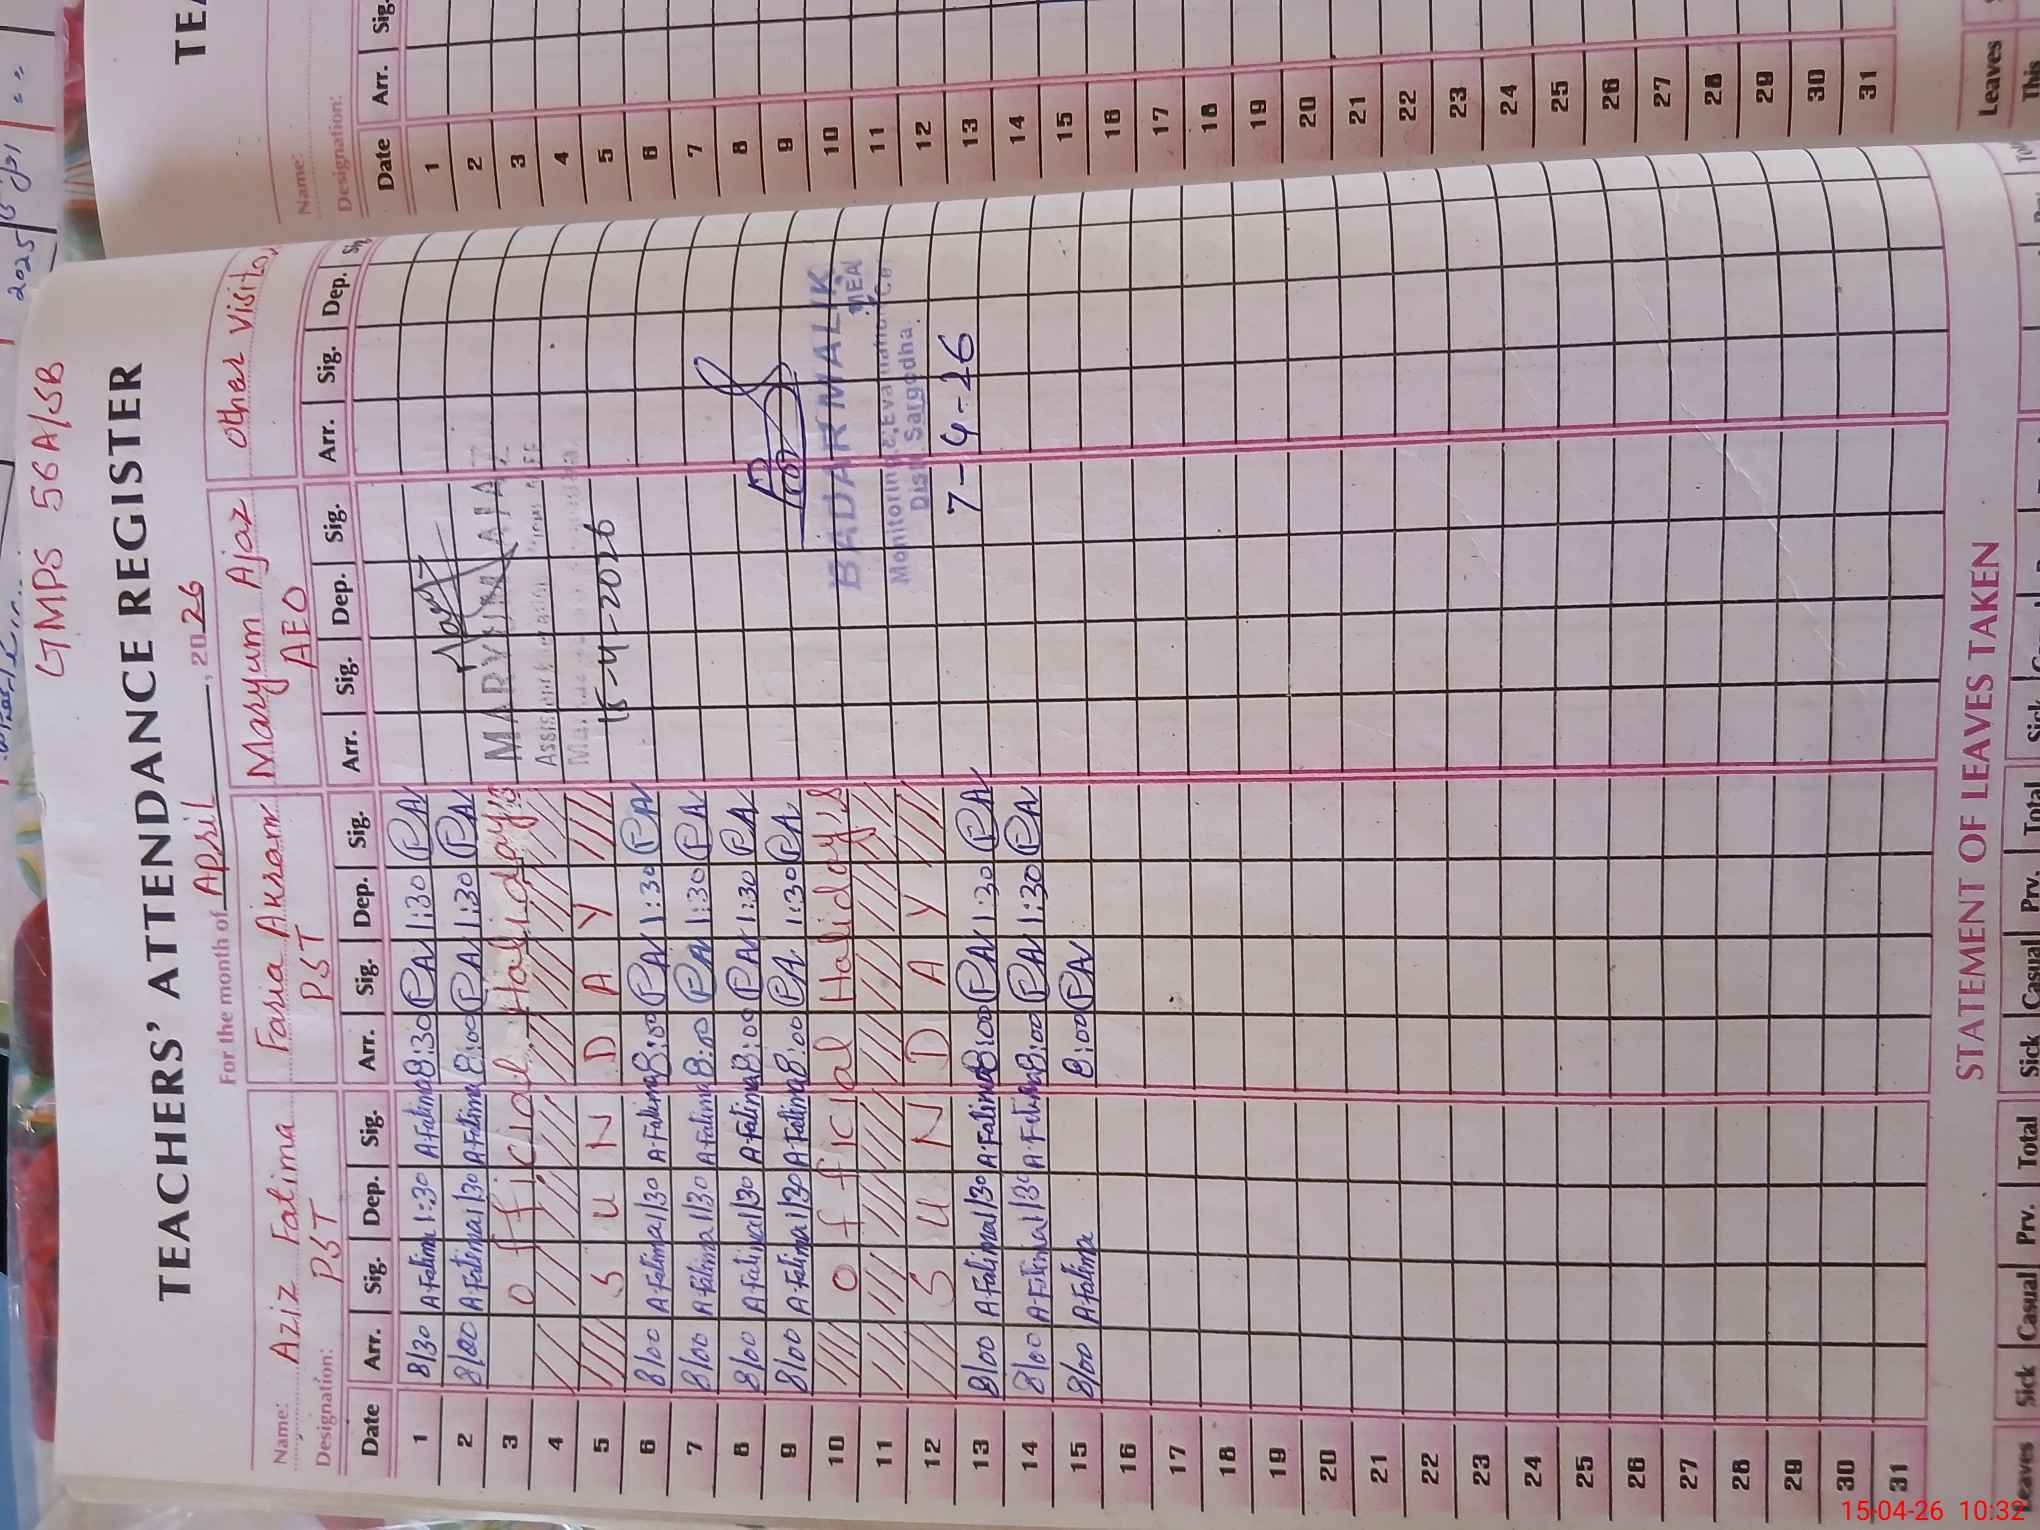 GMPS 56A/SB
TEACHERS' ATTENDANCE REGISTER
For the month of April, 2026
Name: Aziz Fatima Fasia Akram Maryum Ajaz Other Visitor
Designation: PST PST AEO
Date Arr. Sig. Dep. Sig. Arr. Sig. Dep. Sig. Arr. Sig. Dep. Sig. Arr. Sig. Dep.
1 8/30 A.Fatima 1:30 A.Fatima 8:30 PA 1:30 PA
2 8/00 A.Fatima 1/30 A.Fatima 8:00 PA 1:30 PA
3 Official Holidays
4
5 SUNDAY
6 8/00 A.Fatima 1/30 A.Fatima 8:00 PA 1:30 PA
7 8/00 A.Fatima 1/30 A.Fatima 8:00 PA 1:30 PA
8 8/00 A.Fatima 1/30 A.Fatima 8:00 PA 1:30 PA
9 8/00 A.Fatima 1/30 A.Fatima 8:00 PA 1:30 PA
10 Official Holidays
11
12 SUNDAY
13 8/00 A.Fatima 1/30 A.Fatima 8:00 PA 1:30 PA
14 8/00 A.Fatima 1/30 A.Fatima 8:00 PA 1:30 PA
15 8/00 A.Fatima 8:00 PA
16
17
18
19
20
21
22
23
24
25
26
27
28
29
30
31
15-4-2026
BADAR MALIK
MEA
Distt Sargodha.
7-4-26
STATEMENT OF LEAVES TAKEN
Leaves Sick Casual Prv. Total Sick Casual Prv. Total Sick
TEA
Name:
Designation:
Date Arr. Sig.
1
2
3
4
5
6
7
8
9
10
11
12
13
14
15
16
17
18
19
20
21
22
23
24
25
26
27
28
29
30
31
Leaves
This
2025
15-04-26 10:32